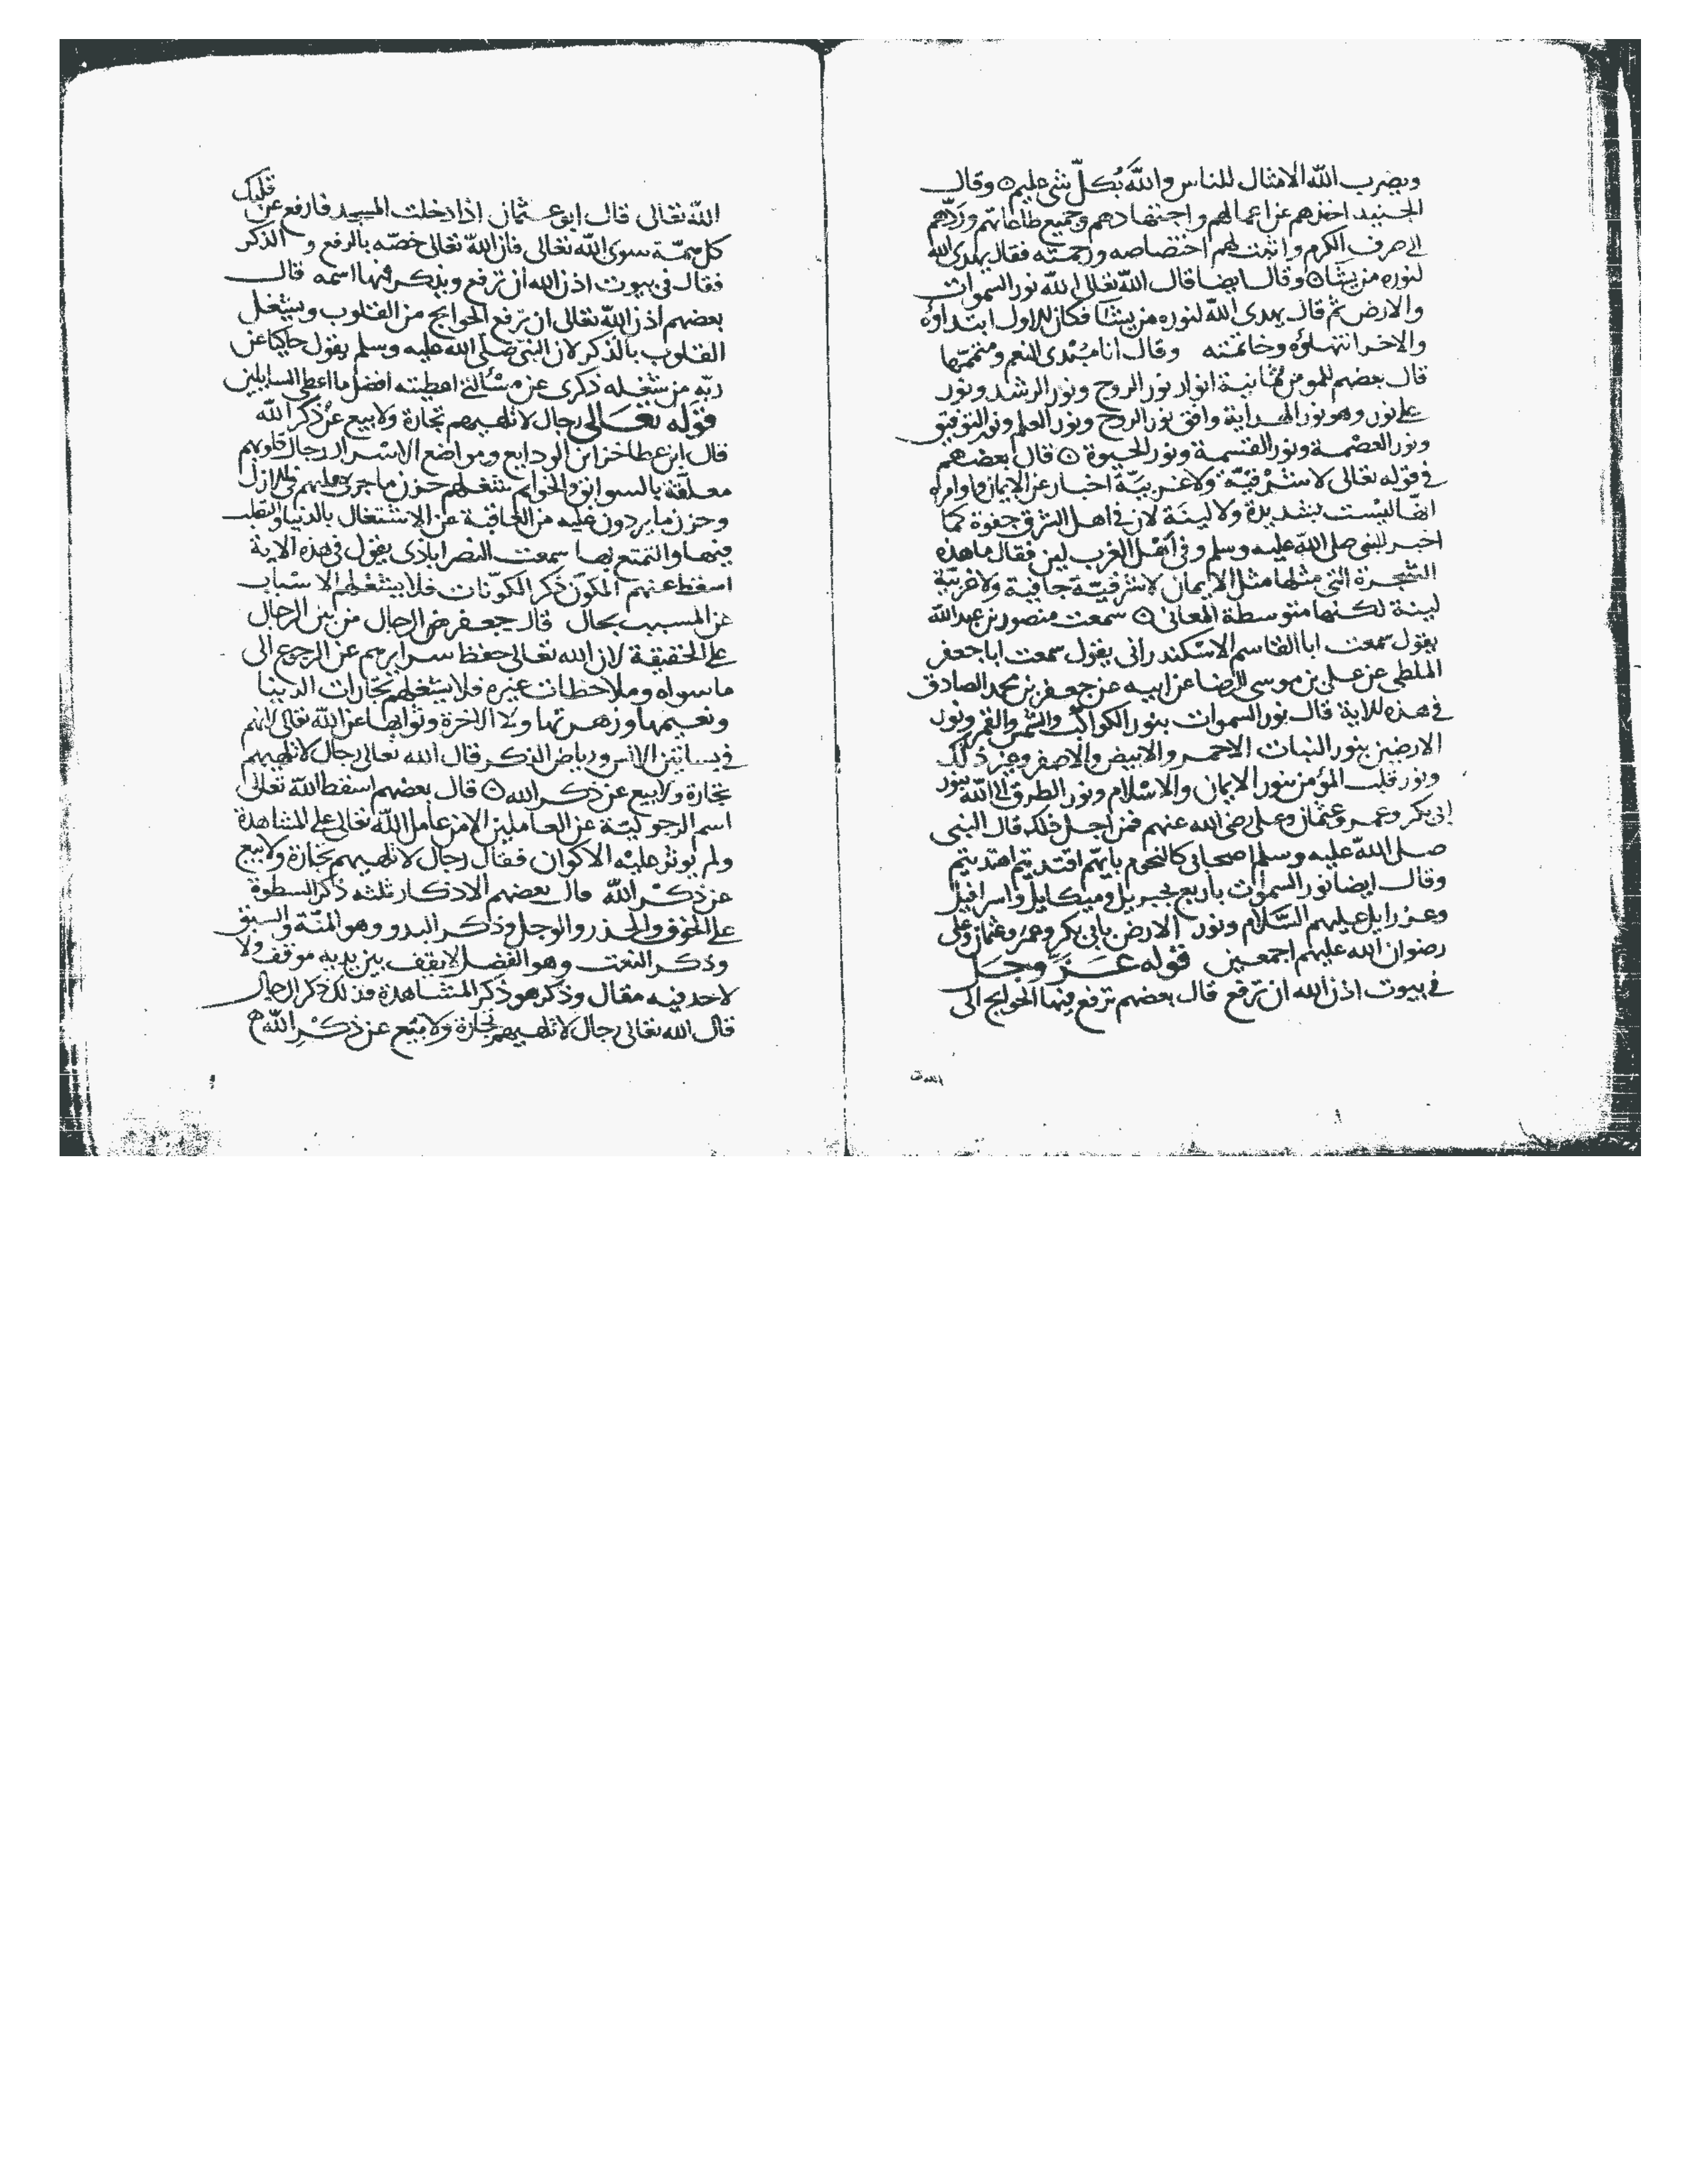 ويضرب الله الامثال للناس والله بكل شئ عليم ۞ وقال
الجنيد اخذهم عن اعمالهم واجتهادهم وجميع طاعاتهم وردهم
الى صرف الكرم واثبت لهم اختصاصه ورحمته فقال يهدى الله
لنوره من يشا ۞ وقال ايضا قال الله تعالى الله نور السموات
والارض ثم قال يهدى الله لنوره من يشا فكان للاول ابتداؤه
والاخر انتهاؤه وخاتمته وقال انا مبتدى النعم ومتممها
قال بعضهم للمومن ثمانية انوار نور الروح ونور الرشد ونور
على نور وهو نور الهداية وافق نور الروح ونور العلم ونور التوفيق
ونور العصمة ونور القسمة ونور الحيوة ۞ قال بعضهم
فى قوله تعالى لا شرقية ولا غربية اخبار عن الايمان واوامره
انها ليست بشديدة ولا لينة لان فى اهل الشرق جفوة كما
اخبر النبى صلى الله عليه وسلم وفى اهل الغرب لين فقال ما هذه
الشجرة التى مثلها مثل الايمان لا شرقية جافية ولا غربية
لينة لكنها متوسطة المعانى ۞ سمعت منصور بن عبد الله
يقول سمعت ابا القاسم الاسكندرانى يقول سمعت ابا جعفر
الملطى عن على بن موسى الرضا عن ابيه عن جعفر بن محمد الصادق
فى هذه الاية قال نور السموات بنور الكواكب والشمس والقمر ونور
الارضين بنور النبات الاحمر والابيض والاصفر وغير ذلك
ونور قلب المؤمن بنور الايمان والاسلام ونور الطرق الى الله بنور
ابى بكر وعمر وعثمان وعلى رضى الله عنهم فمن اجل ذلك قال النبى
صلى الله عليه وسلم اصحابى كالنجوم بايهم اقتديتم اهتديتم
وقال ايضا نور السموات باربع بجبريل وميكايل واسرافيل
وعزرايل عليهم السلام ونور الارض بابى بكر وعمر وعثمان وعلى
رضوان الله عليهم اجمعين قوله عز وجل
فى بيوت اذن الله ان ترفع قال بعضهم ترفع فيها الحوايج الى
الله ت
الله تعالى قال ابو عثمان اذا دخلت المسجد فارفع عن قلبك
كل همة سوى الله تعالى فان الله تعالى خصه بالرفع و الذكر
فقال فى بيوت اذن الله ان ترفع ويذكر فيها اسمه قال
بعضهم اذن الله تعالى ان ترفع الحوايج من القلوب ويشغل
القلوب بالذكر لان النبى صلى الله عليه وسلم يقول حاكيا عن
ربه من شغله ذكرى عن مسألتى اعطيته افضل ما اعطى السايلين
قوله تعالى رجال لا تلهيهم تجارة ولا بيع عن ذكر الله
قال ابن عطا خزاين الودايع ومواضع الاسرار رجال قلوبهم
معلقة بالسوابق والخواتم شغلهم حزن ما جرى عليهم فى الازل
وحزن ما يردون عليه من العاقبة عن الاشتغال بالدنيا والتطلب
فيها والتمتع بها سمعت النصراباذى يقول فى هذه الاية
اسقط عنهم المكون ذكر المكونات فلا يشغلهم الاسباب
عن المسبب بحال قال جعفر هم الرجال من بين الرجال
على الحقيقة لان الله تعالى حفظ سرايرهم عن الرجوع الى
ما سواه وملاحظات غيره فلا يشغلهم تجارات الدنيا
ونعيمها وزهرتها ولا الاخرة وثوابها عن الله تعالى لانهم
فى بساتين الانس ورياض الذكر قال الله تعالى رجال لا تلهيهم
تجارة ولا بيع عن ذكر الله ۞ قال بعضهم اسقط الله تعالى
اسم الرجولية عن العاملين الا من عامل الله تعالى على المشاهدة
ولم يوثر عليه الاكوان فقال رجال لا تلهيهم تجارة ولا بيع
عن ذكر الله قال بعضهم الاذكار ثلثه ذكر السطوة
على الخوف والحذر والوجل وذكر البدو وهو المنة والسبق
وذكر النعت وهو الفضل لا يقف بين يديه موقف ولا
لاحد فيه مقال وذكر هو ذكر المشاهدة فذلك ذكر الرجال
قال الله تعالى رجال لا تلهيهم تجارة ولا بيع عن ذكر الله